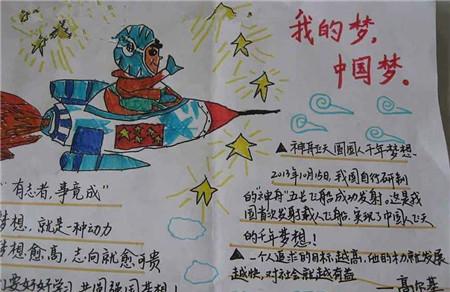 我的梦，
中国梦。
▲神舟飞天圆国人千年梦想
2013年10月15日，我国自行研制
的"神舟"五号飞船成功发射。这是我
国首次发射载人飞船，实现了中国人飞天
的千年梦想！
▲一个人追求的目标越高，他的才力就发展
越快，对社会就越有益
——高尔基
"有志者，事竟成"
梦想，就是一种动力
梦想愈高，志向就愈可贵
们要好好学习，共圆强国梦想！